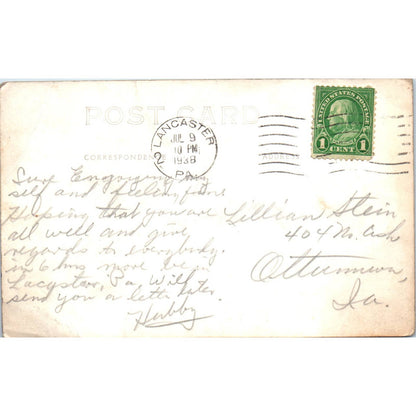 POST CARD
CORRESPONDENCE
ADDRESS
LANCASTER
2
JUL 9
10 PM
1938
PA.
UNITED STATES POSTAGE
1 CENT 1
Sure Enjoying my
self and feeling fine
Hoping that you are
all well and give
regards to everybody.
in 6 hrs more be in
Pa, Will
send you a letter later
Herbby
Lillian Stein
404 No. Cash
Ottumwa,
Ia.